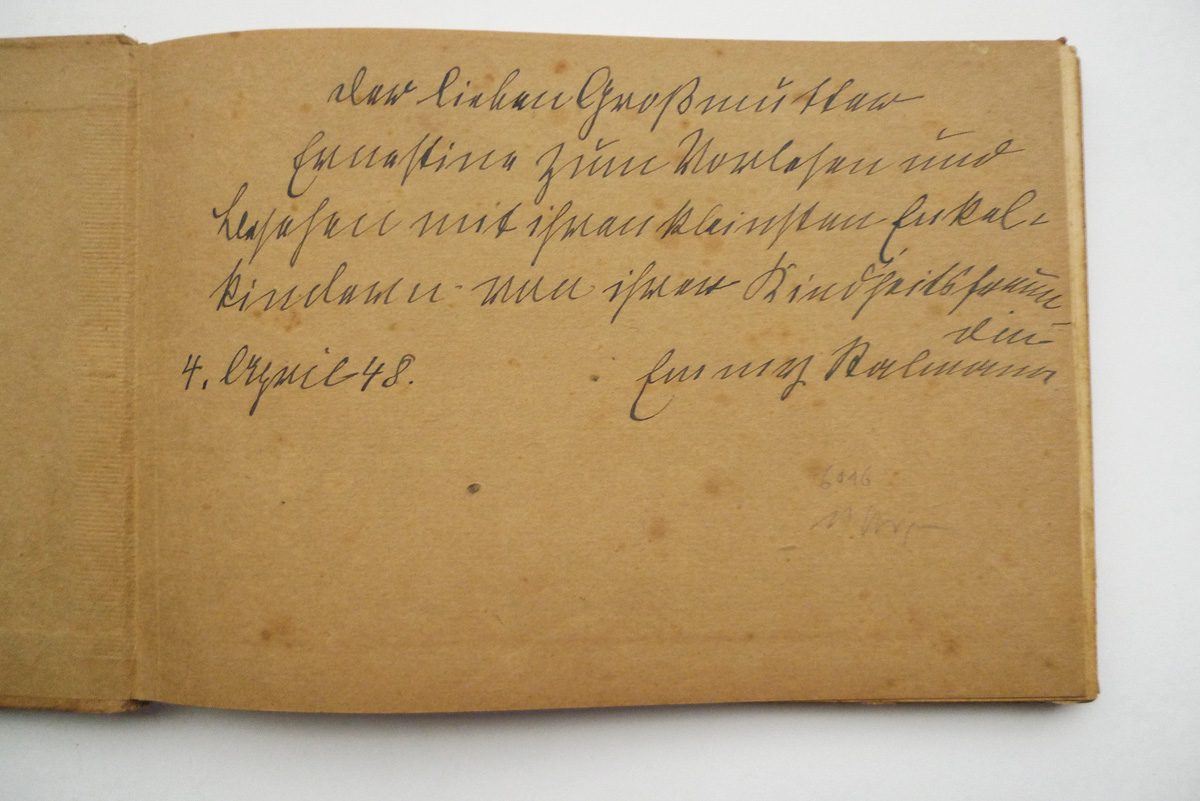 Der lieben Großmutter
Ernestine zum Vorlesen und
besehen mit ihren kleinsten Enkel=
kindern von ihrer Kindheitsfreun
din
4. April 48. Emmy Stalmann
6046